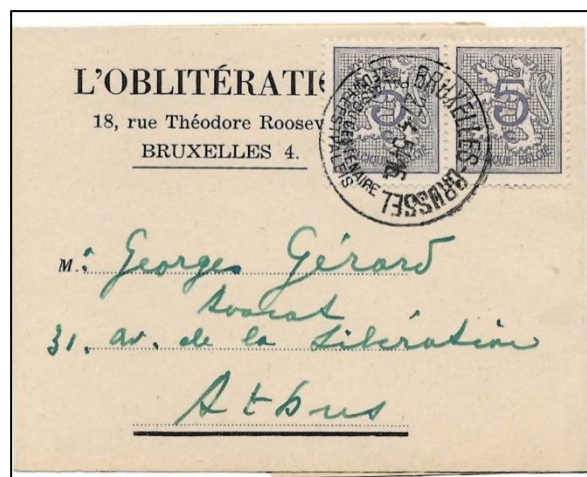 L'OBLITÉRATI
18, rue Théodore Roosev
BRUXELLES 4.
5 5
BRUXELLES-BRUSSEL
CENTENAIRE
M. Georges Gérard
Avocat
31. av. de la Libération
Athus